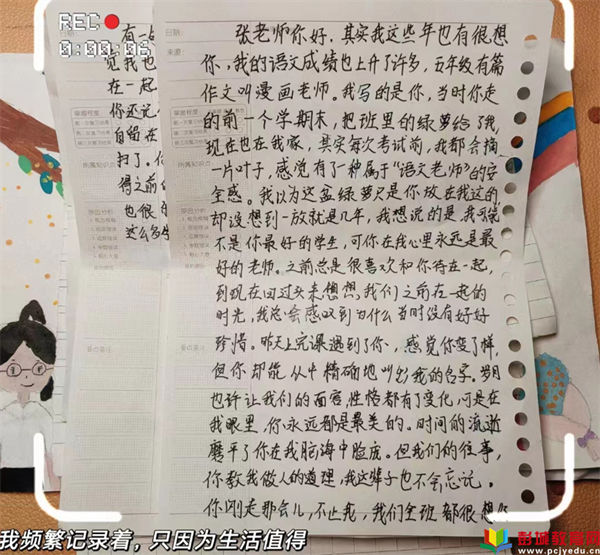 REC
0:00:06
日期:
来源:
有一
觉我也
在一起
你还记
自留
扫了。
得之前
也很
这么多年
张老师你好,其实我这些年也有很想
你,我的语文成绩也上升了许多,五年级有篇
作文叫漫画老师。我写的是你,当时你走
的前一个学期末,把班里的绿萝给了我,
现在也在我家,其实每次考试前,我都会摘
一片叶子,感觉有了一种属于“语文老师”的安
全感。我以为这盆绿萝只是你放在我这的,
却没想到一放就是几年,我想说的是我可能
不是你最好的学生,可你在我心里永远是最
好的老师。之前总是很喜欢和你待在一起,
到现在回过头来想想,我们之前在一起的
时光,我总会感叹到为什么当时没有好好
珍惜。昨天上完课遇到了你,感觉你变了样,
但你却能从中精确地叫出我的名字。岁月
也许让我们的面容,性格都有了变化,可是在
我眼里,你永远都是最美的。时间的流逝
磨平了你在我脑海中脸庞。但我们的往事,
你教我做人的道理,我这辈子也不会忘记。
你刚走那会儿,不止我,我们全班都很想你
掌握程度
所属知识点
原因分析
要点备注
我频繁记录着,只因为生活值得
彭城教育网
www.pcjyedu.cn